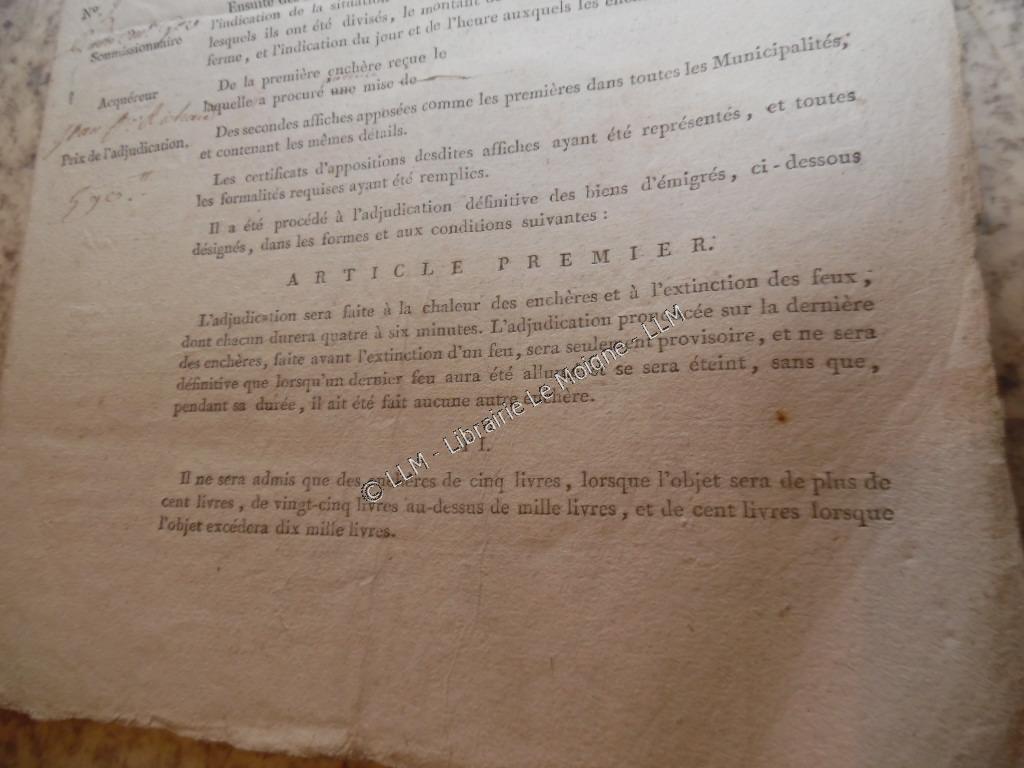 N°.
Ensuite des
l'indication de la situation
lesquels ils ont été divisés, le montant de
Soumissionnaire
ferme, et l'indication du jour et de l'heure auxquels les
De la première enchère reçue le
laquelle a procuré une mise de
Acquéreur
Des secondes affiches apposées comme les premières dans toutes les Municipalités,
et contenant les mêmes détails.
Prix de l'adjudication.
Les certificats d'appositions desdites affiches ayant été représentés, et toutes
les formalités requises ayant été remplies.
Il a été procédé à l'adjudication définitive des biens d'émigrés, ci-dessous
désignés, dans les formes et aux conditions suivantes :
ARTICLE PREMIER.
L'adjudication sera faite à la chaleur des enchères et à l'extinction des feux,
dont chacun durera quatre à six minutes. L'adjudication prononcée sur la dernière
des enchères, faite avant l'extinction d'un feu, sera seulement provisoire, et ne sera
définitive que lorsqu'un dernier feu aura été allumé se sera éteint, sans que,
pendant sa durée, il ait été fait aucune autre enchère.
II.
Il ne sera admis que des enchères de cinq livres, lorsque l'objet sera de plus de
cent livres, de vingt-cinq livres au-dessus de mille livres, et de cent livres lorsque
l'objet excédera dix mille livres.
© LLM - Librairie Le Moigne - LLM